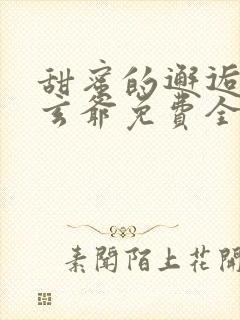 甜蜜的邂逅
玄爺免費全
素聞陌上花開